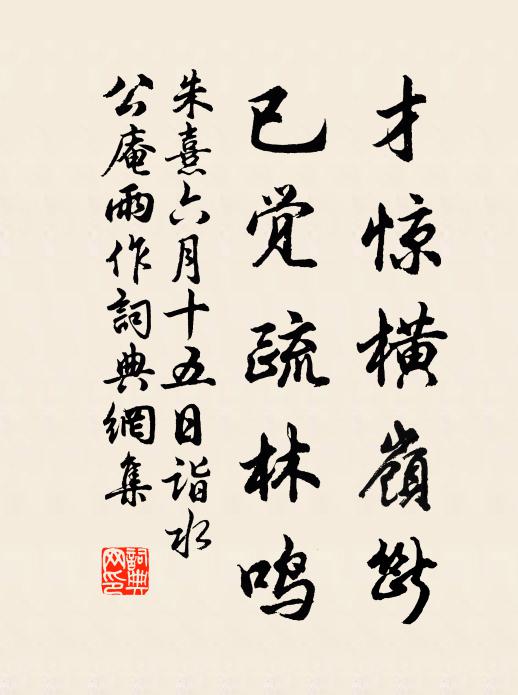 才惊横嶺断
已觉疏林鸣
朱熹六月十五日诣水
公庵雨作詞典網集
詞典网印